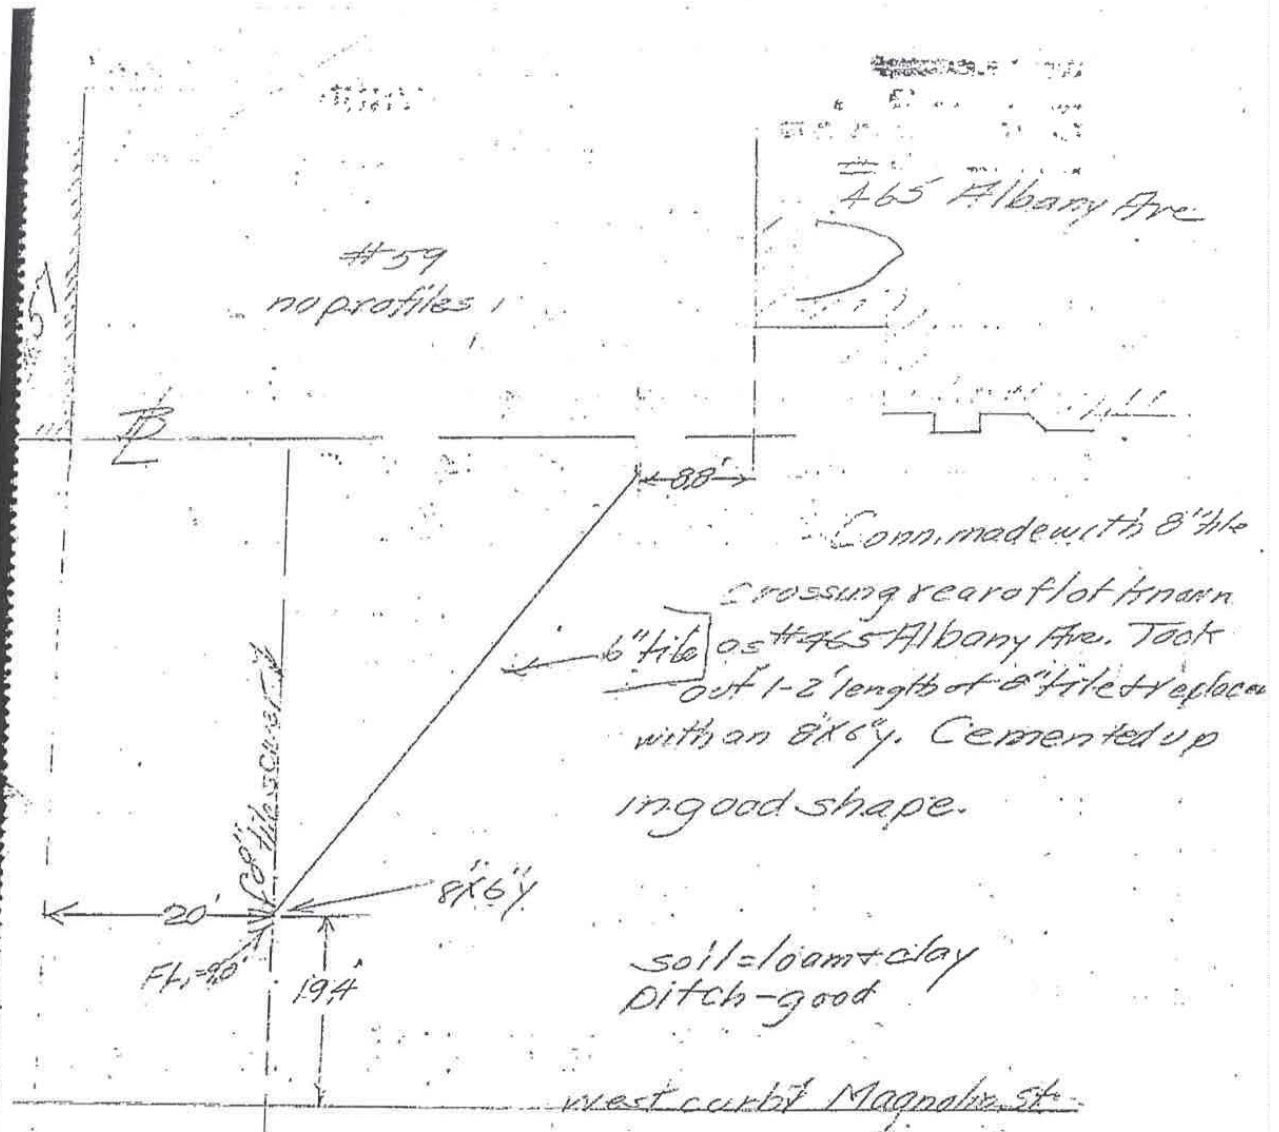 465 Albany Ave
#59
no profiles
8.8'
Conn. made with 8" tile
crossing rear of lot known
as #465 Albany Ave. Took
out 1-2' length of 8" tile & replaced
with an 8"x6" Y. Cemented up
in good shape.
6" tile
8" tile sewer
8"x6" Y
20'
FL.=9.0'
19.4'
soil=loam+clay
pitch-good
west curb Magnolia St.